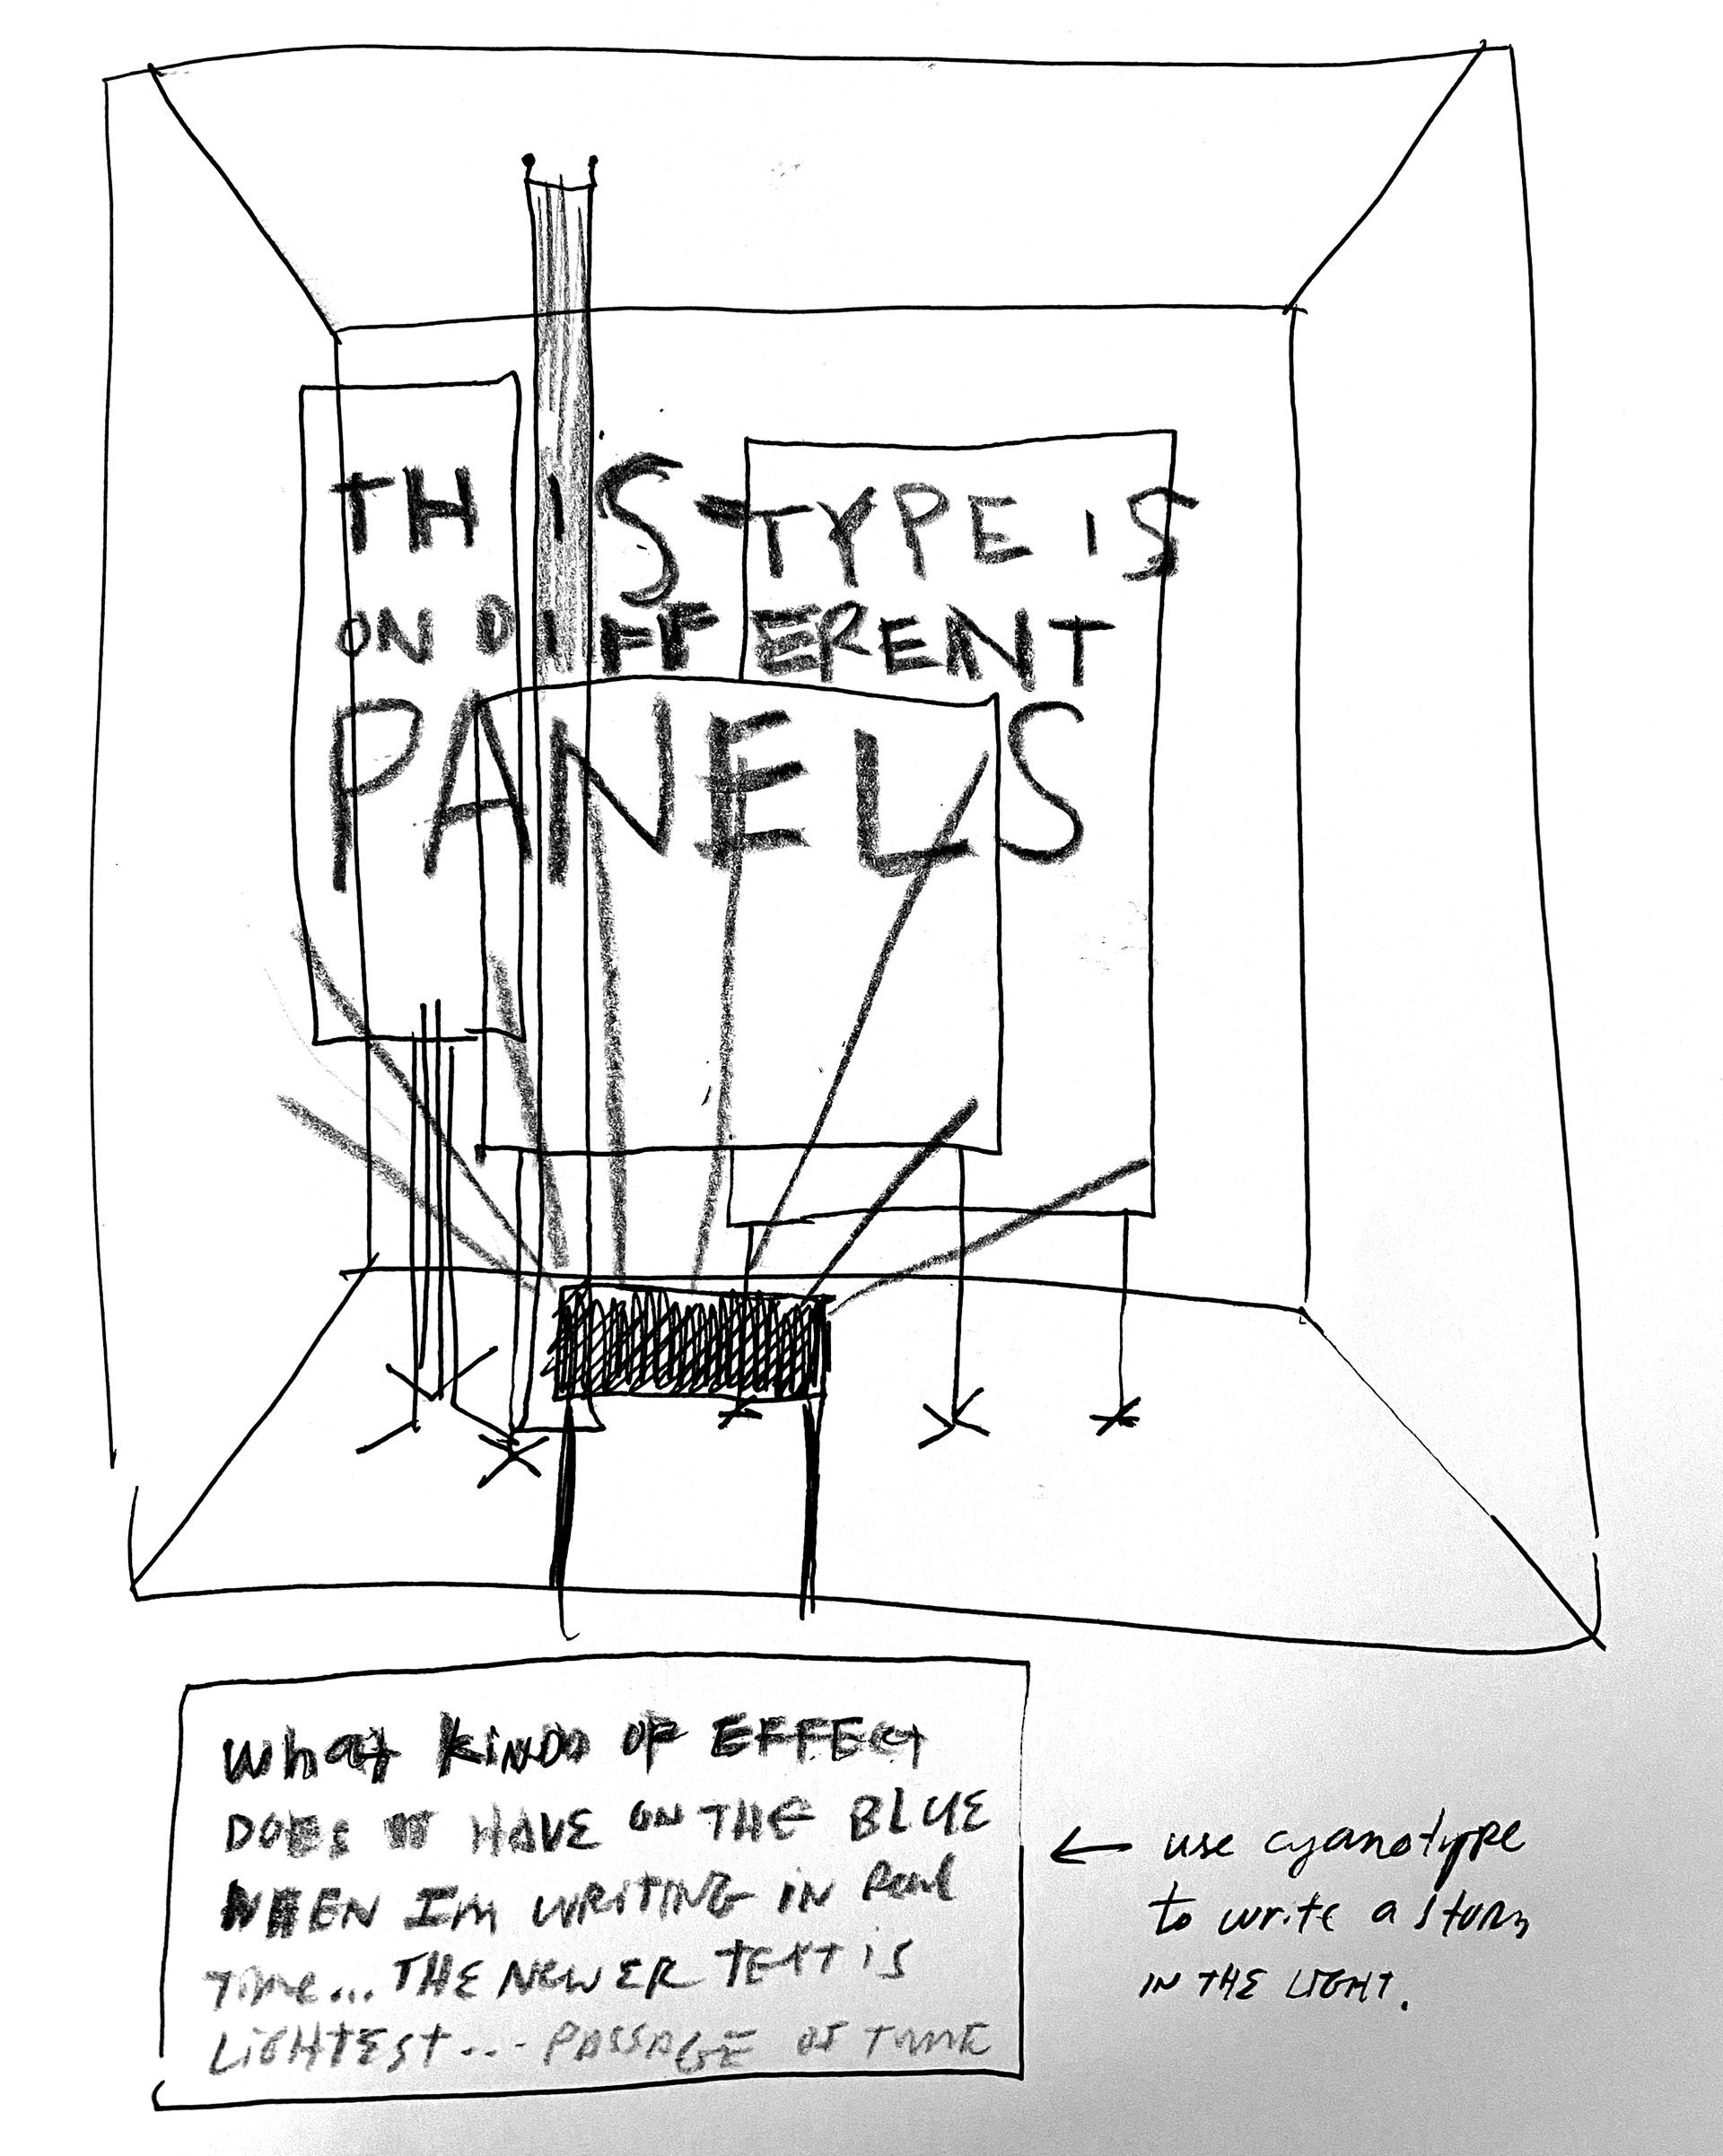 THIS TYPE IS
ON DIFFERENT
PANELS
What KiNDS OF EFFECT
DOES IT HAVE ON THE BLUE
WHEN I'm WRITING IN Real
Time... THE NEWER TEXT IS
LiGHTEST... PASSAGE OF TIME
← use cyanotype
to write a story
IN THE LIGHT.